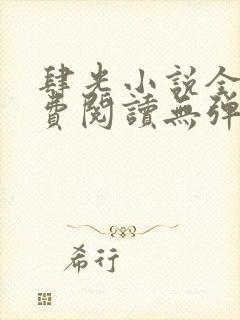 肆光小說全
費閱讀無彈
希行